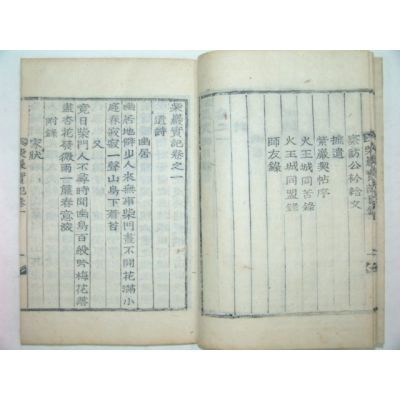 察訪公衿給文
摭遺
紫巖契帖序
火王城同苦錄
火王城同盟錄
師友錄
紫巖實記卷之一
遺詩
幽居
幽居地僻少人來無事柴門晝不開花滿小
庭春寂寂一聲山鳥下蒼苔
又
竟日柴門人不尋時聞幽鳥百般吟梅花落
盡杏花發微雨一簾春意深
附錄
家狀
紫巖實記卷一